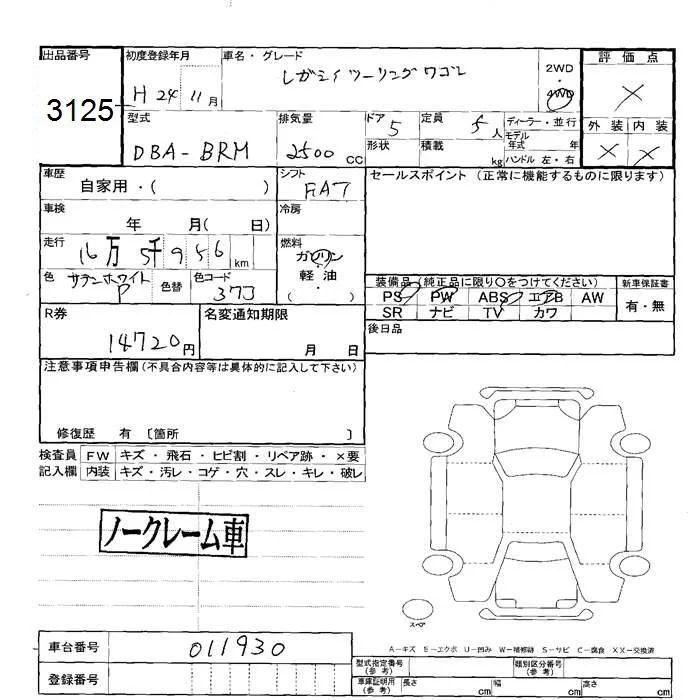 出品番号 初度登録年月 車名・グレード 評価点
3125 H 24 11月 レガシィツーリングワゴン 2WD 4WD ×
型式 排気量 ドア 5 定員 5人 ディーラー・並行 外装 内装
DBA-BRM 2500CC 形状 積載 kg モデル年式 年 × ×
ハンドル 左・右
車歴 シフト セールスポイント (正常に機能するものに限ります)
自家用・( ) FAT
車検 冷房
年 月( 日)
走行 燃料
16万 5千956km ガソリン
色 サテンホワイトP 色替 色コード 37J 軽油
( ・ )
装備品(純正品に限り○をつけてください) 新車保証書
PS PW ABS エアB AW 有・無
SR ナビ TV カワ
R券 名変通知期限 後日品
14720円 月 日
注意事項申告欄(不具合内容等は具体的に記入して下さい)
修復歴 有 〔箇所 〕
検査員 FW キズ・飛石・ヒビ割・リペア跡・×要
記入欄 内装 キズ・汚レ・コゲ・穴・スレ・キレ・破レ
ノークレーム車
スペア
A-キズ E-エクボ U-凹み W-補修跡 S-サビ C-腐食 XX-交換済
車台番号 011930
型式指定番号(参考) 類別区分番号(参考)
登録番号
車庫証明用(参考) 長さ cm 幅 cm 高さ cm